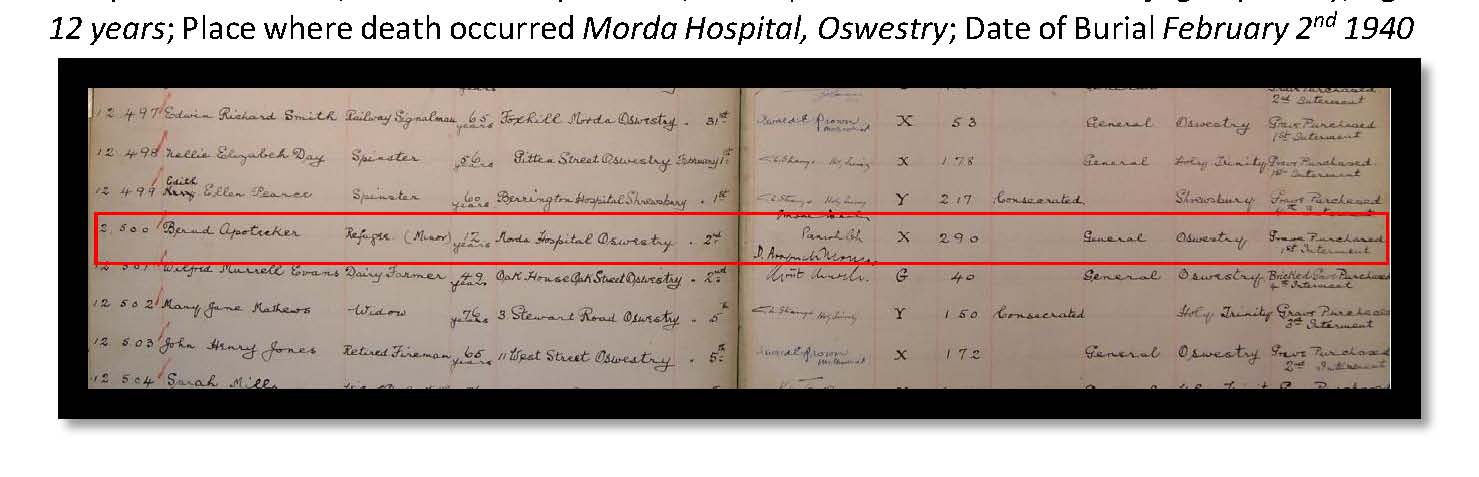 12 years; Place where death occurred Morda Hospital, Oswestry; Date of Burial February 2nd 1940
years General 2nd Interment
12 497 Edwin Richard Smith Railway Signalman 65 years Foxhill Morda Oswestry . 31st X 53 General Oswestry Grave Purchased 1st Interment
12 498 Nellie Elizabeth Day Spinster 56 years Street Oswestry February 1st X 178 General Holy Trinity Grave Purchased 1st Interment
12 499 Edith Ellen Pearce Spinster 60 years Berrington Hospital Shrewsbury . 1st Y 217 Consecrated Shrewsbury Grave Purchased 4th Interment
2,500 Bernd Apotecker Refugee (Minor) 12 years Morda Hospital Oswestry . 2nd X 290 General Oswestry Grave Purchased 1st Interment
12 501 Wilfred Murrell Evans Dairy Farmer 49 years Oak House Oak Street Oswestry . 2nd G 40 General Oswestry Bricked Grave Purchased 4th Interment
12 502 Mary Jane Mathews Widow 76 years 3 Stewart Road Oswestry . 5th Y 150 Consecrated Holy Trinity Grave Purchased 3rd Interment
12 503 John Henry Jones Retired Fireman 65 years 11 West Street Oswestry . 5th X 172 General Oswestry Grave Purchased 2nd Interment
12 504 Sarah Mills